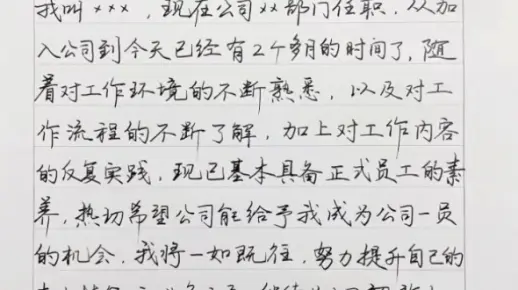 我叫×××，现在公司××部门任职，从加
入公司到今天已经有2个多月的时间了，随
着对工作环境的不断熟悉，以及对工
作流程的不断了解，加上对工作内容
的反复实践，现已基本具备正式员工的素
养，热切希望公司能给予我成为公司一员
的机会，我将一如既往，努力提升自己的